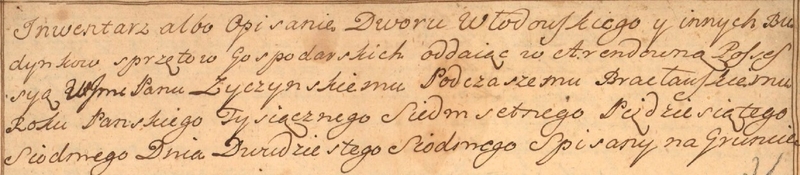 Inwentarz albo Opisanie Dworu Włodowskiego y innych Bu
dynkow sprzętow Gospodarskich oddaiąc w Arendowną Posses
syą WJmć Panu Zyczynskiemu Podczaszemu Bracławskiemu
Roku Panskiego Tysiącznego Siedmsetnego Piędziesiątego
Siodmego Dnia Dwudziestego Siodmego Spisany na Gruncie